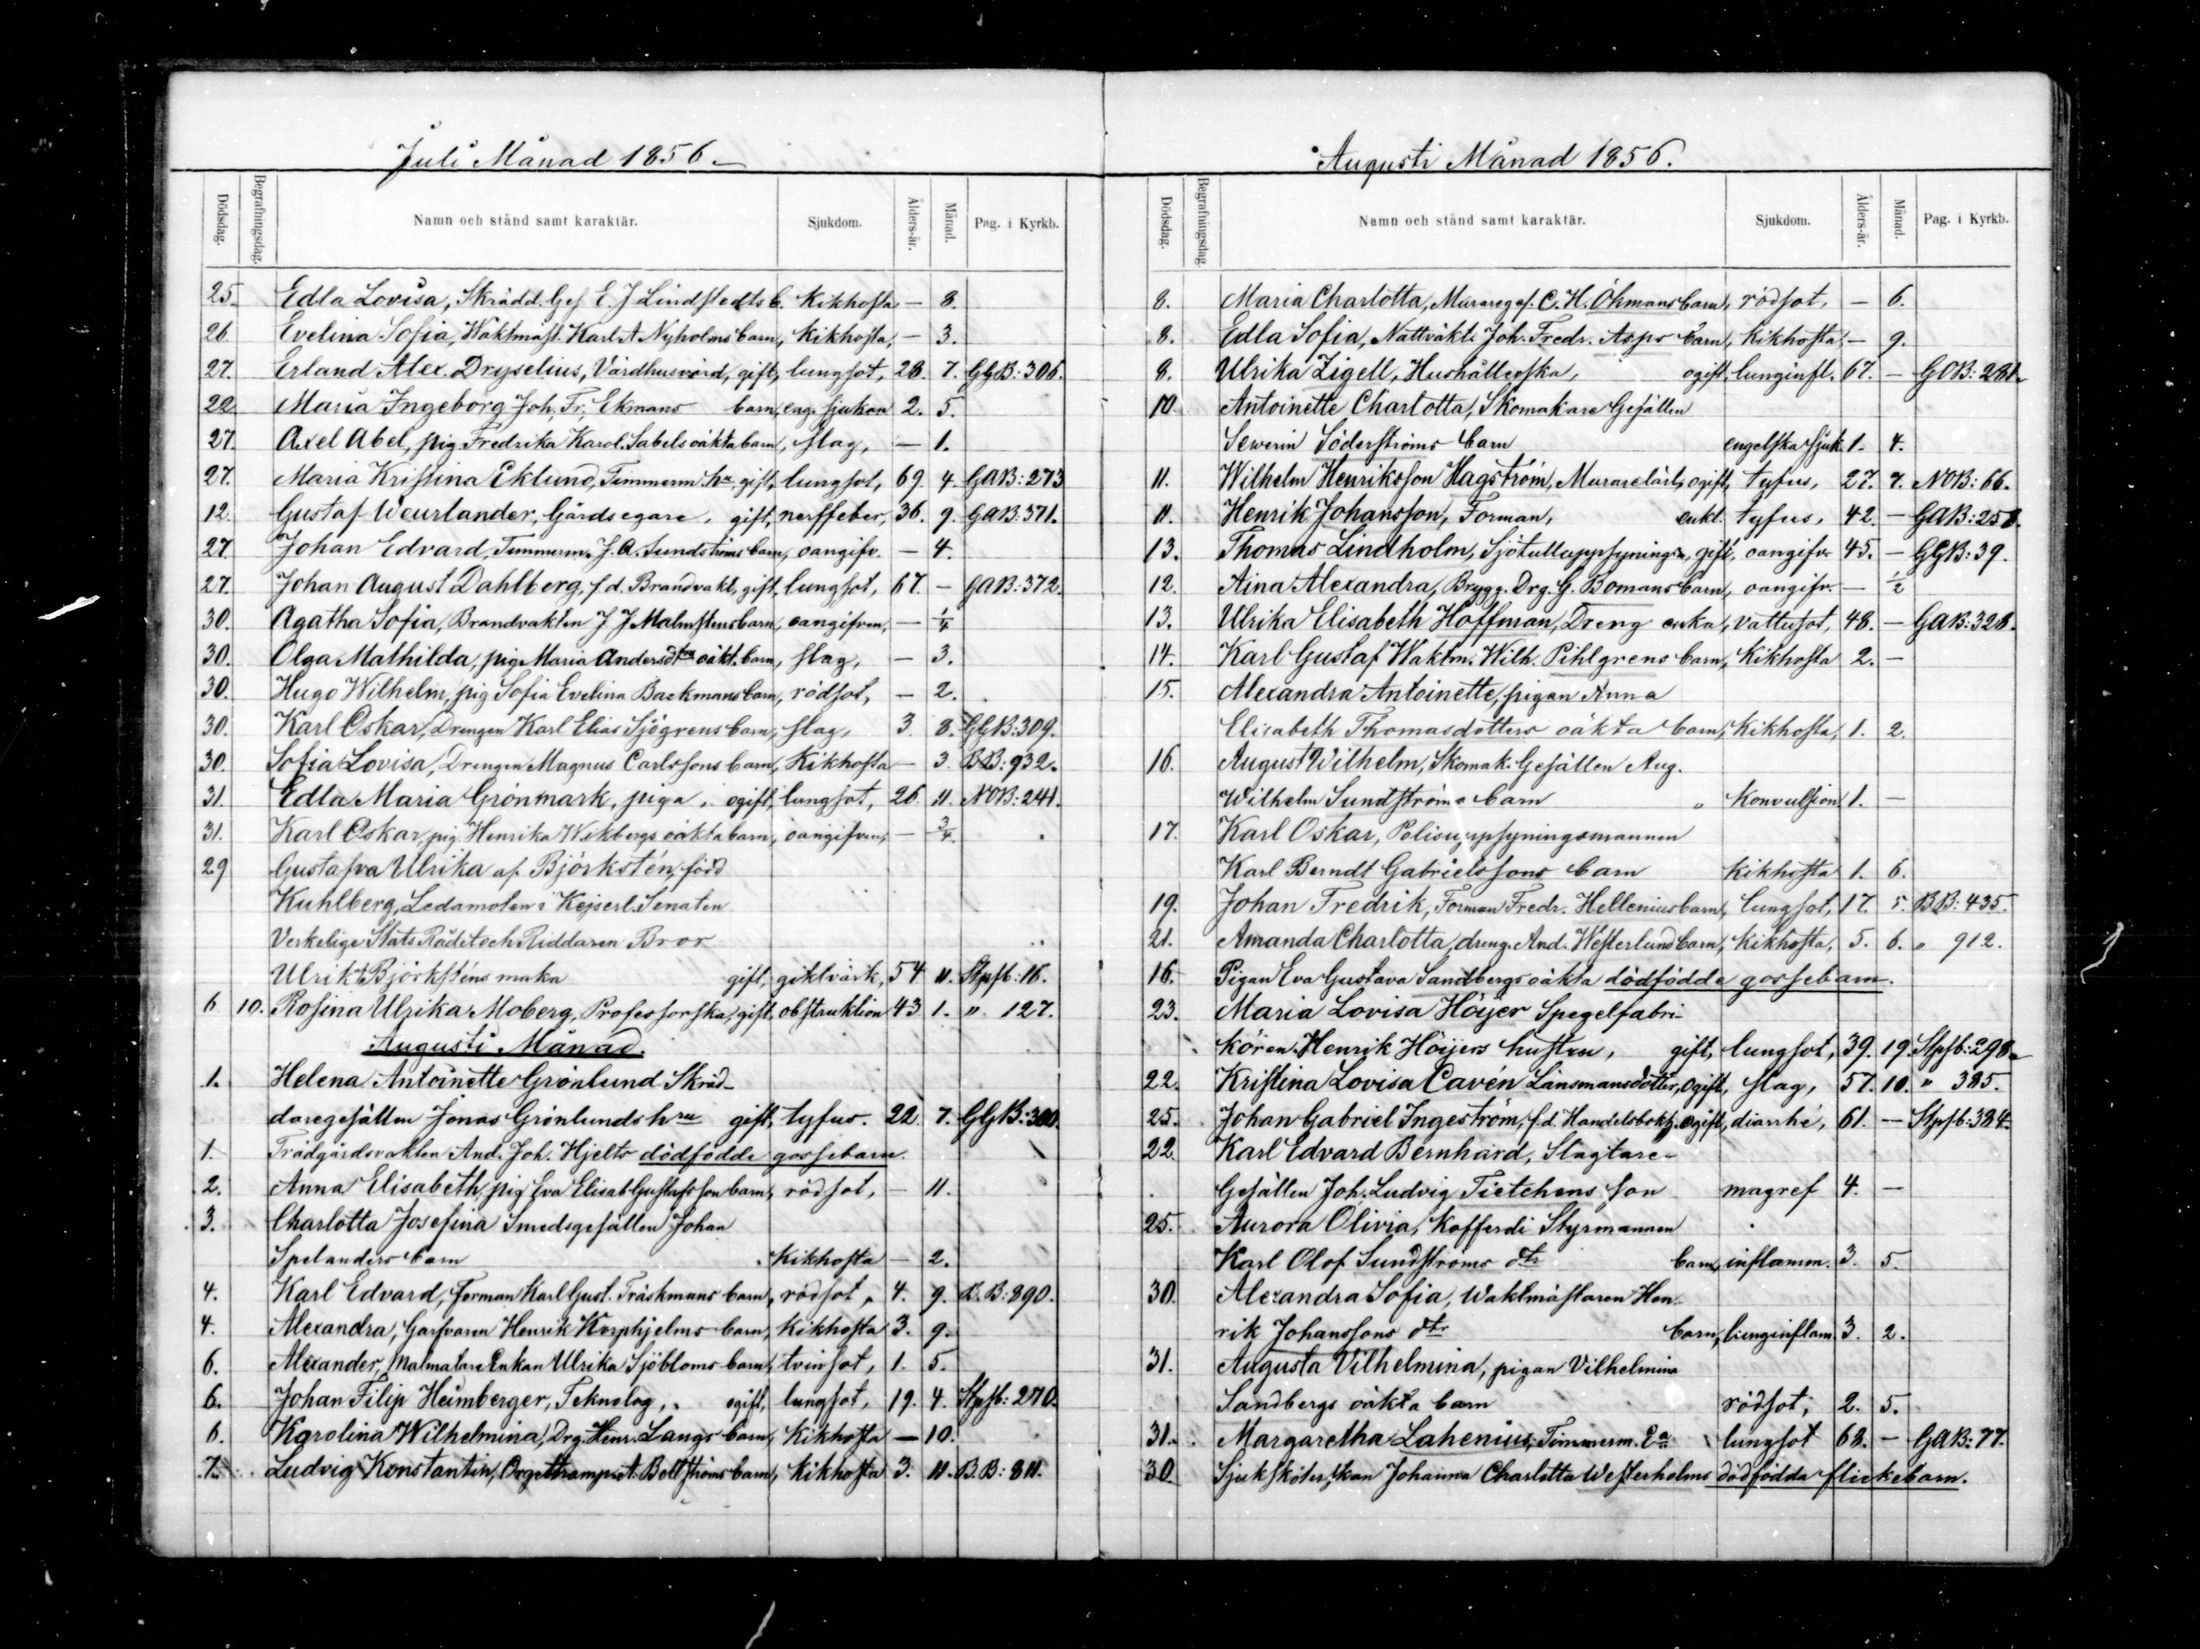 Juli Månad 1856
Dödsdag. Begrafningsdag. Namn och stånd samt karaktär. Sjukdom. Ålders-år. Månad. Pag. i Kyrkb.
25. Edla Lovisa, Skrädd. Ges. E. J Lindstedts b. Kikhosta — 8.
26. Evelina Sofia, Waktmäst. Karl A Nyholms barn, Kikhosta, — 3.
27. Erland Alex. Dryselius, Värdhusvärd, gift, lungsot, 28. 7. GGB: 306.
22 Maria Ingeborg Joh. Fr. Ekmans barn, eng. sjukan 2. 5.
27. Axel Abel, pig Fredrika Karol. Sabels oäkta barn, slag, — 1.
27. Maria Kristina Eklund, Timmerm. hu gift, lungsot, 69 4. GAB: 273
12. Gustaf Weurlander, Gårdsegare, gift, nerffeber, 36. 9. GAB: 371.
27. Johan Edvard, Timmerm. J. A. Sundströms barn, oangifv. — 4.
27. Johan August Dahlberg, f.d. Brandvakt, gift, lungsot, 67. — GAB: 372.
30. Agatha Sofia, Brandvakten J J Malmstens barn, oangifven, — 1/4
30. Olga Mathilda, pig. Maria Andersdtrs oäkt. barn, slag, — 3.
30. Hugo Wilhelm, pig Sofia Evelina Backmans barn, rödsot, — 2.
30. Karl Oskar, Drengen Karl Elias Sjögrens barn, slag, 3 8. GGB: 309.
30. Sofia Lovisa, Drengen Magnus Carlssons barn, Kikhosta — 3. BB: 932.
31. Edla Maria Grönmark, piga, ogift, lungsot, 26 11. NOB: 241.
31. Karl Oskar, pig. Henrika Wikbergs oäkta barn, oangifven, — 3/4.
29 Gustafva Ulrika af Björkstén, född
Kuhlberg, Ledamoten i Kejserl. Senaten
Verkelige Stats Rådet och Riddaren Bror
Ulrik Björksténs maka gift, giktvärk, 54 11. Stpsb: 16.
6 10. Rosina Ulrika Moberg, Professorska, gift, obstruktion 43 1. " 127.
Augusti Månad.
1. Helena Antoinette Grönlund Skräd-
daregesällen Jonas Grönlunds hru gift, tyfus. 22 7. GGB: 300.
1. Trädgårdsvakten And. Joh. Hjelts dödfödde gossebarn
2. Anna Elisabeth, pig Eva Elisab Gustafsson barn, rödsot, — 11.
3. Charlotta Josefina Smedsgesällen Johan
Spelanders barn Kikhosta — 2.
4. Karl Edvard, Forman Karl Gust. Träskmans barn, rödsot, 4. 9. B.B: 890.
4. Alexandra, Garfvaren Henrik Korphjelms barn, Kikhosta 3. 9.
6. Alexander, Malmatare Enkan Ulrika Sjöbloms barn, tvinsot, 1. 5.
6. Johan Filip Heimberger, Teknolog, ogift, lungsot, 19. 4. Stpsb: 270.
6. Karolina Wilhelmina, Drg. Henr. Längs barn, Kikhosta — 10.
7. Ludvig Konstantin, A. Boltströms barn, Kikhosta 3. 11. B.B: 811.
Augusti Månad 1856.
Dödsdag. Begrafningsdag. Namn och stånd samt karaktär. Sjukdom. Ålders-år. Månad. Pag. i Kyrkb.
8. Maria Charlotta, Murareges. C. H. Öhmans barn, rödsot, — 6.
8. Edla Sofia, Nattväkt. Joh. Fredr. Asps barn, Kikhosta, — 9.
8. Ulrika Zigell, Hushållerska, ogift, lunginfl. 67. — GOB: 281.
10. Antoinette Charlotta, Skomakare Gesällen
Sewerin Söderströms barn engelska sjuk. 1. 4.
11. Wilhelm Henriksson Hagström, Murarelärl., ogift, tyfus, 27. 7. NOB: 66.
11. Henrik Johansson, Forman, enkl. tyfus, 42. — GAB: 258.
13. Thomas Lindholm, Sjötulluppsynings., gift, oangifv. 45. — GGB: 39.
12. Aina Alexandra, Brygg. Drg. G. Bomans barn, oangifv. — 1/2
13. Ulrika Elisabeth Hoffman, Dreng enka, vattusot, 48. — GAB: 328.
14. Karl Gustaf Waktm. Wilh. Pihlgrens barn, Kikhosta 2. —
15. Alexandra Antoinette, pigan Anna
Elisabeth Thomasdotters oäkta barn, Kikhosta, 1. 2.
16. August Wilhelm, Skomak. Gesällen Aug.
Wilhelm Sundströms barn " Konvulsion. 1. —
17. Karl Oskar, Polisuppsyningsmannen
Karl Berndt Gabrielssons barn Kikhosta 1. 6.
19. Johan Fredrik, Forman Fredr. Hellenius barn, lungsot, 17. 5. BB: 435.
21. Amanda Charlotta, dreng. And. Westerlund barn, Kikhosta, 5. 6. " 912.
16. Pigan Eva Gustava Sandbergs oäkta dödfödde gossebarn.
23. Maria Lovisa Höijer Spegelfabri-
kören Henrik Höijers hustru, gift, lungsot, 39. 19. Stpsb: 298.
22. Kristina Lovisa Cavén Länsmansdotter, ogift, slag, 57. 10. " 385.
25. Johan Gabriel Ingeström, f.d. Handelsbokh. ogift, diarrhé, 61. — Stpsb: 384.
22. Karl Edvard Bernhard, Slagtare-
Gesällen Joh. Ludvig Tietchens son magref 4. —
25. Aurora Olivia, Kofferdi Styrmannen
Karl Olof Sundströms dtr barn, inflamm. 3. 5.
30. Alexandra Sofia, Waktmästaren Hen-
rik Johanssons dtr barn, lunginflam. 3. 2.
31. Augusta Vilhelmina, pigan Vilhelmina
Sandbergs oäkta barn rödsot, 2. 5.
31. Margaretha Lahenius, Timmerm. Ea lungsot 68. — GAB: 77.
30. Sjuksköterskan Johanna Charlotta Westerholms dödfödda flickebarn.